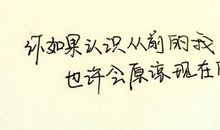 你如果认识从前的我
也许会原谅现在